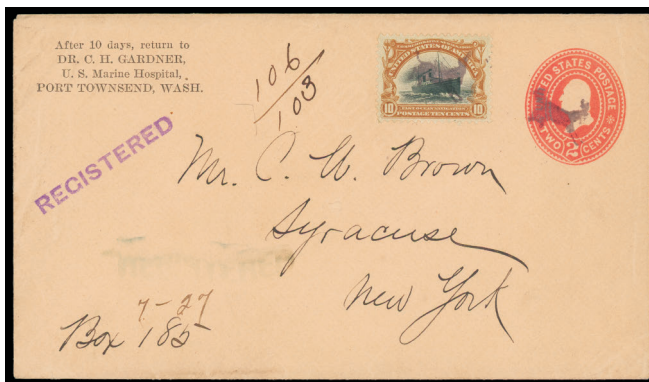 After 10 days, return to
DR. C. H. GARDNER,
U. S. Marine Hospital,
PORT TOWNSEND, WASH.
106
103
UNITED STATES OF AMERICA
10 10
POSTAGE TEN CENTS
UNITED STATES POSTAGE
TWO 2 CENTS
REGISTERED
Mr. C. W. Brown
Syracuse
New York
7-27
Box 185